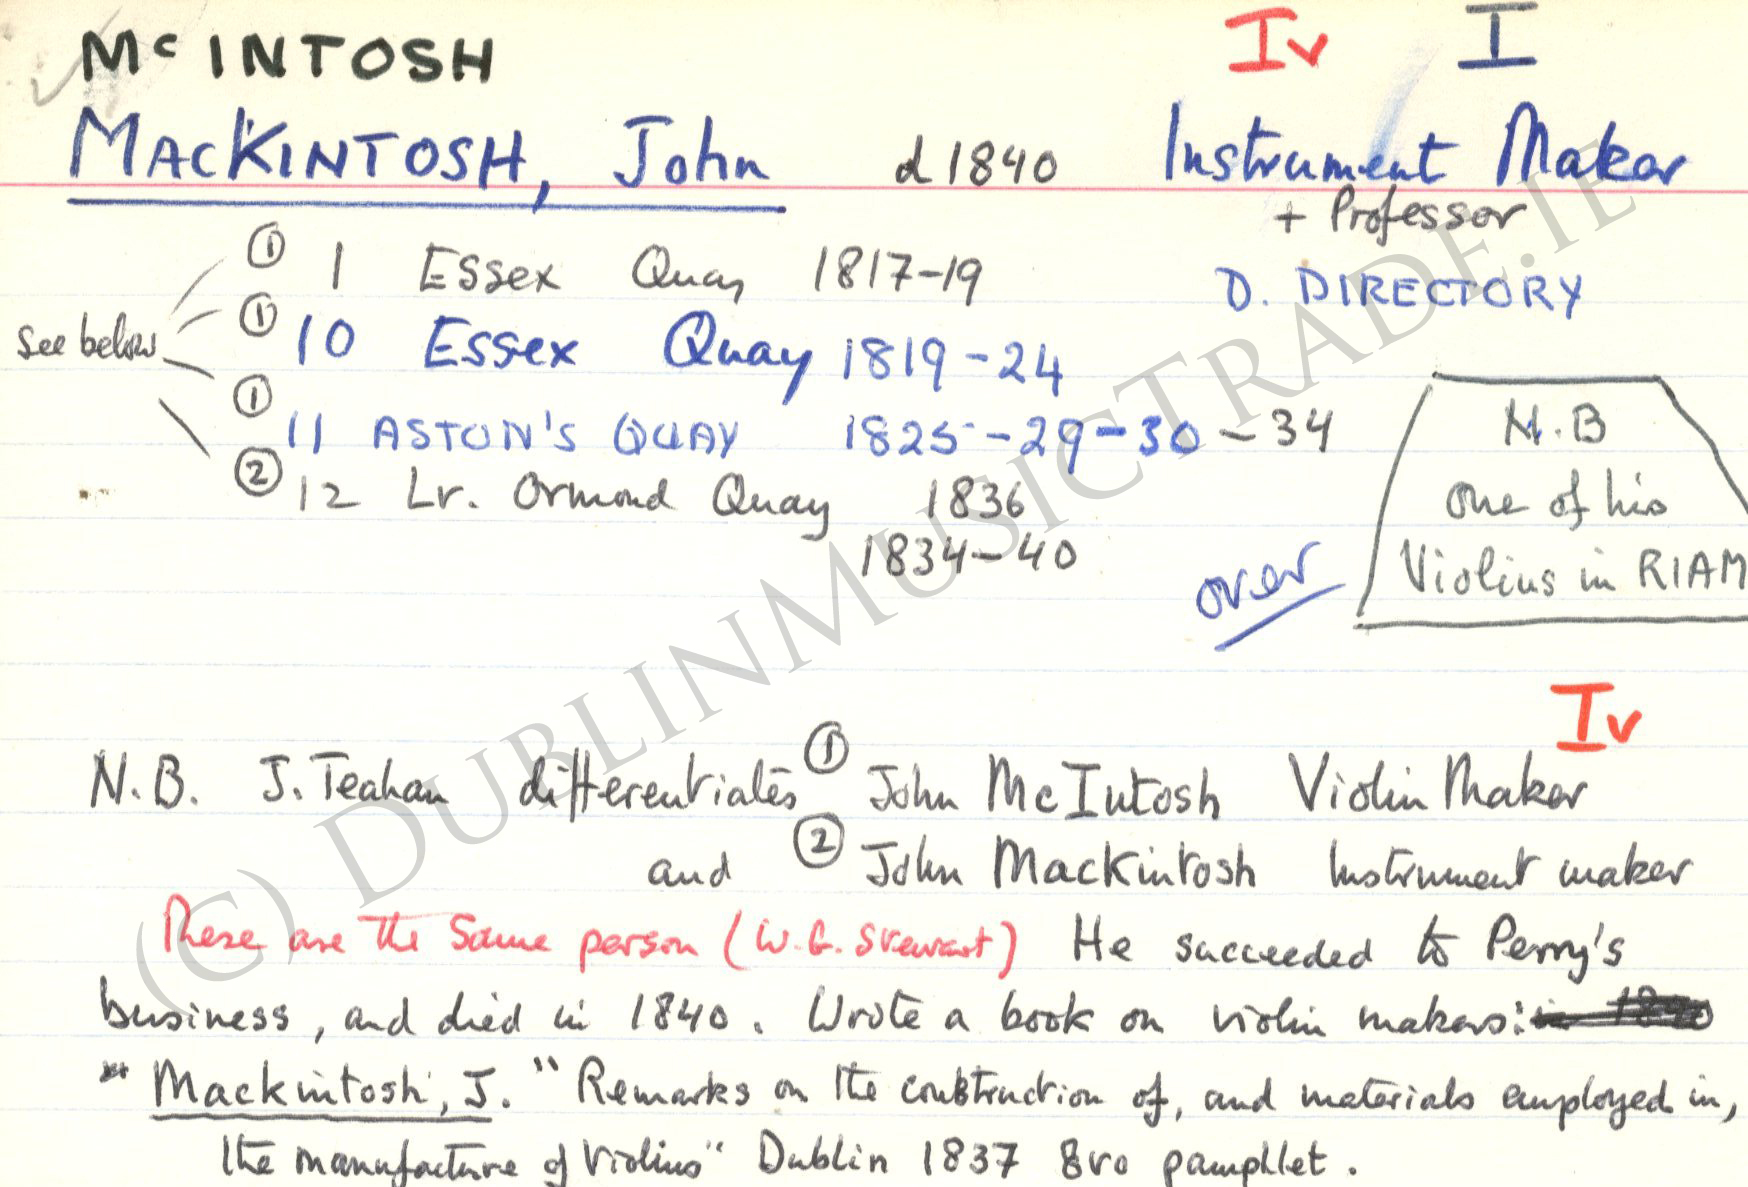 McINTOSH Iv I
MACKINTOSH, John d 1840 Instrument Maker
+ Professor
① 1 Essex Quay 1817-19 D. DIRECTORY
see below ① 10 Essex Quay 1819-24
① 11 ASTON'S QUAY 1825-29-30-34
② 12 Lr. Ormond Quay 1836
1834-40
over
N.B
one of his
Violins in RIAM
Iv
N.B. J. Teahan differentiates ① John McIntosh Violin Maker
and ② John Mackintosh Instrument maker
These are the same person (W.G. Stewart) He succeeded to Perry's
business, and died in 1840. Wrote a book on violin makers:
* Mackintosh, J. "Remarks on the construction of, and materials employed in,
the manufacture of Violins" Dublin 1837 8vo pamphlet.
(C) DUBLINMUSICTRADE.IE